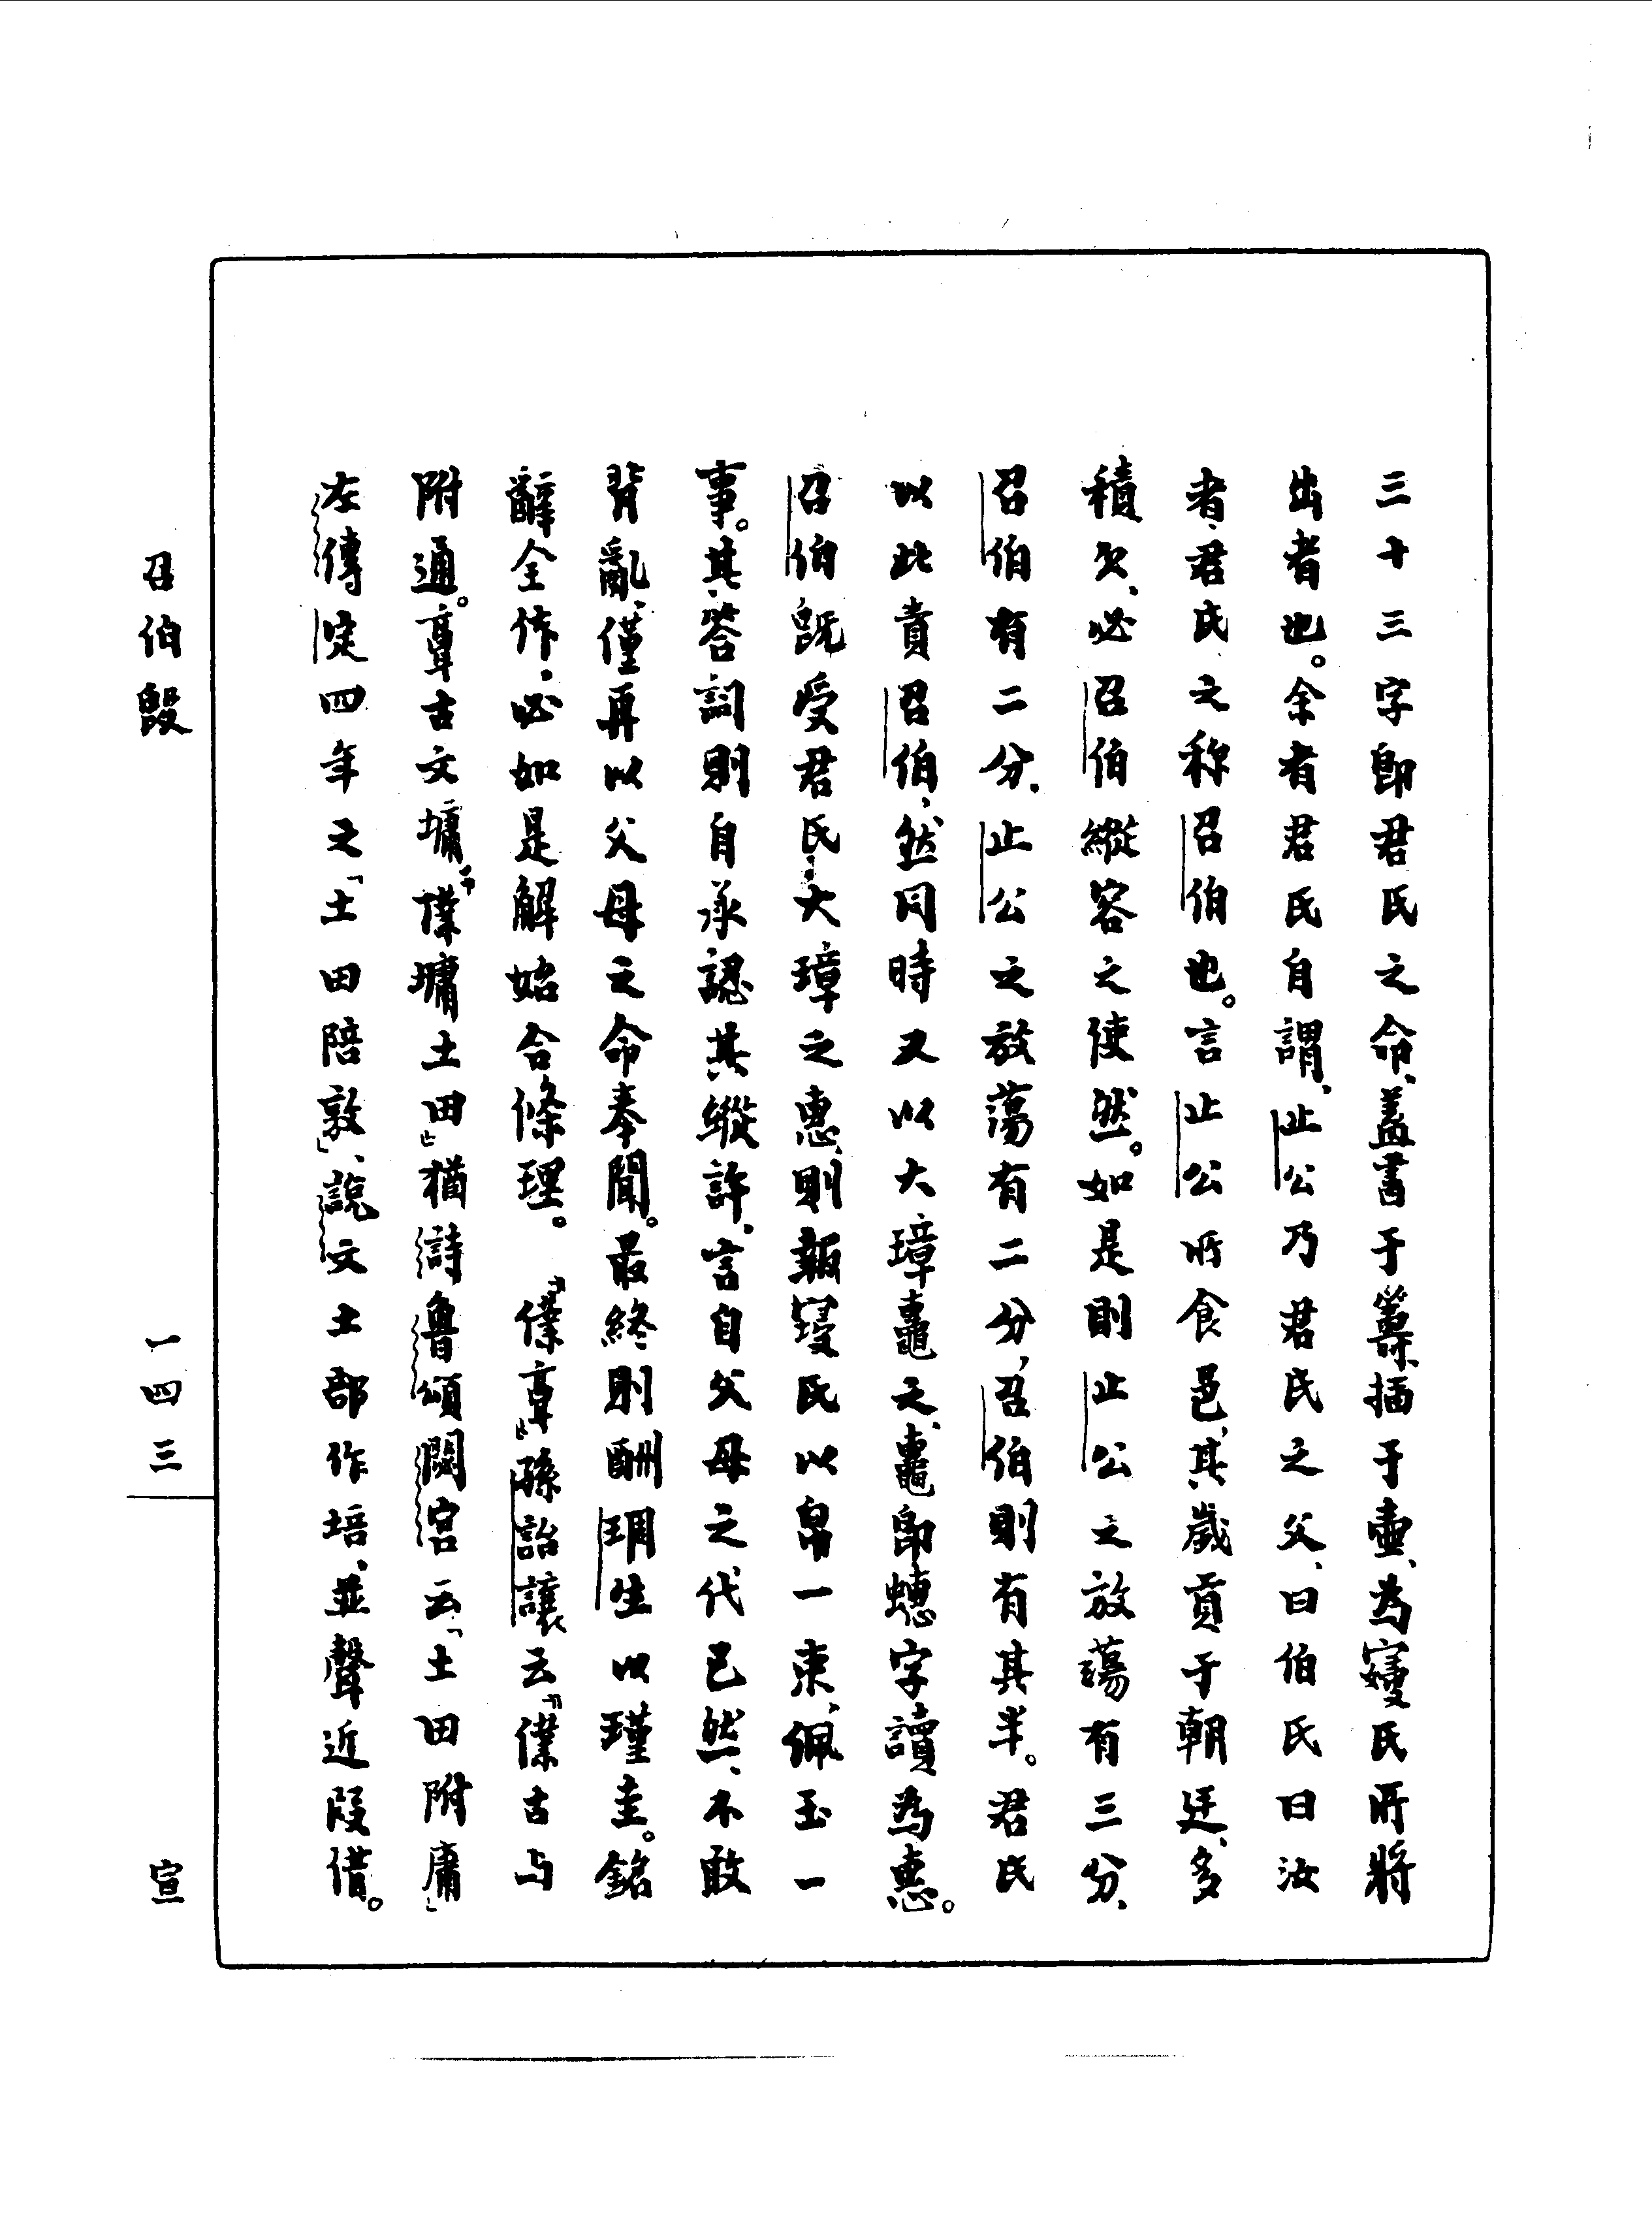 三十三字即君氏之命、蓋書于籌、插于壺、為㝛氏所將
出者也。余者君氏自謂、止公乃君氏之父、曰伯氏曰汝
者、君氏之称召伯也。言止公所食邑、其歲貢于朝廷、多
積欠、必召伯縱容之使然。如是則止公之放蕩有三分、
召伯有二分、止公之放蕩有二分、召伯則有其半。君氏
以此責召伯、然同時又以大璋之、即蟪字讀為惠。
召伯既受君氏大璋之惠、則報氏以帛一束、佩玉一
事。其答詞則自承認其縱許、言自父母之代已然、不敢
背亂、僅再以父母之命奉聞。最終則酬琱生以瑾圭。銘
辭全作、必如是解始合條理。「僕𩫏」孫詒讓云『僕古与
附通。𩫏古文墉字。「僕墉土田」猶詩魯頌閟宮云「土田附庸」
左傳定四年之「土田陪敦」、說文土部作培、並聲近叚借。
召伯𣪘
一四三
宣